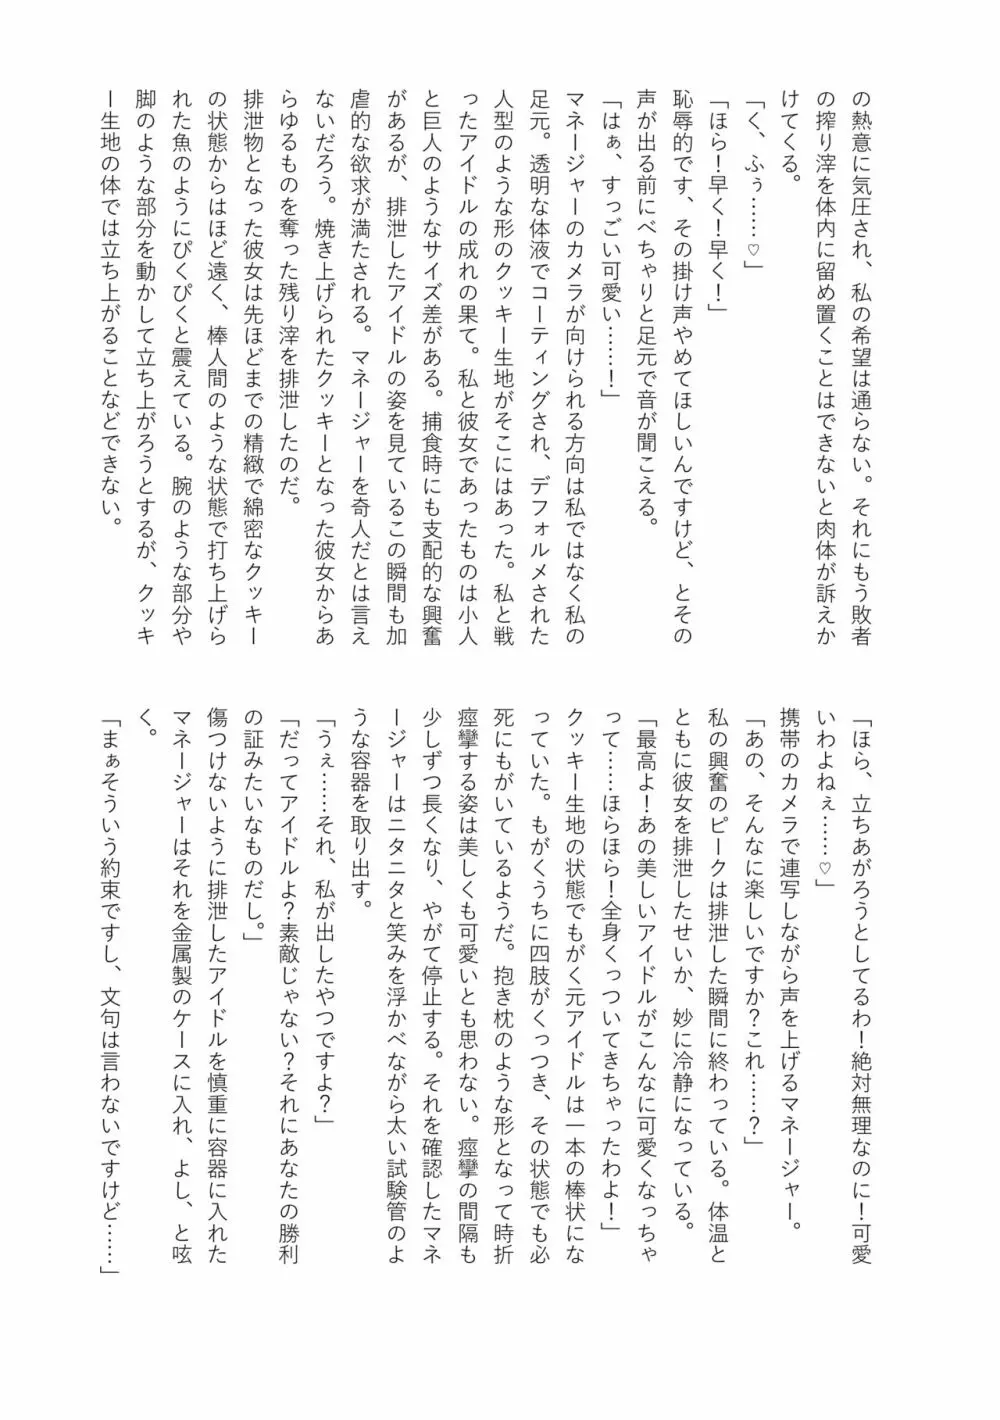 の熱意に気圧され、私の希望は通らない。それにもう敗者
の搾り滓を体内に留め置くことはできないと肉体が訴えか
けてくる。
「く、ふぅ……♡」
「ほら！早く！早く！」
恥辱的です、その掛け声やめてほしいんですけど、とその
声が出る前にべちゃりと足元で音が聞こえる。
「はぁ、すっごい可愛い……！」
マネージャーのカメラが向けられる方向は私ではなく私の
足元。透明な体液でコーティングされ、デフォルメされた
人型のような形のクッキー生地がそこにはあった。私と戦
ったアイドルの成れの果て。私と彼女であったものは小人
と巨人のようなサイズ差がある。捕食時にも支配的な興奮
があるが、排泄したアイドルの姿を見ているこの瞬間も加
虐的な欲求が満たされる。マネージャーを奇人だとは言え
ないだろう。焼き上げられたクッキーとなった彼女からあ
らゆるものを奪った残り滓を排泄したのだ。
排泄物となった彼女は先ほどまでの精緻で綿密なクッキー
の状態からはほど遠く、棒人間のような状態で打ち上げら
れた魚のようにぴくぴくと震えている。腕のような部分や
脚のような部分を動かして立ち上がろうとするが、クッキ
ー生地の体では立ち上がることなどできない。
「ほら、立ちあがろうとしてるわ！絶対無理なのに！可愛
いわよねぇ……♡」
携帯のカメラで連写しながら声を上げるマネージャー。
「あの、そんなに楽しいですか？これ……？」
私の興奮のピークは排泄した瞬間に終わっている。体温と
ともに彼女を排泄したせいか、妙に冷静になっている。
「最高よ！あの美しいアイドルがこんなに可愛くなっちゃ
って……ほらほら！全身くっついてきちゃったわよ！」
クッキー生地の状態でもがく元アイドルは一本の棒状にな
っていた。もがくうちに四肢がくっつき、その状態でも必
死にもがいているようだ。抱き枕のような形となって時折
痙攣する姿は美しくも可愛いとも思わない。痙攣の間隔も
少しずつ長くなり、やがて停止する。それを確認したマネ
ージャーはニタニタと笑みを浮かべながら太い試験管のよ
うな容器を取り出す。
「うぇ……それ、私が出したやつですよ？」
「だってアイドルよ？素敵じゃない？それにあなたの勝利
の証みたいなものだし。」
傷つけないように排泄したアイドルを慎重に容器に入れた
マネージャーはそれを金属製のケースに入れ、よし、と呟
く。
「まぁそういう約束ですし、文句は言わないですけど……」